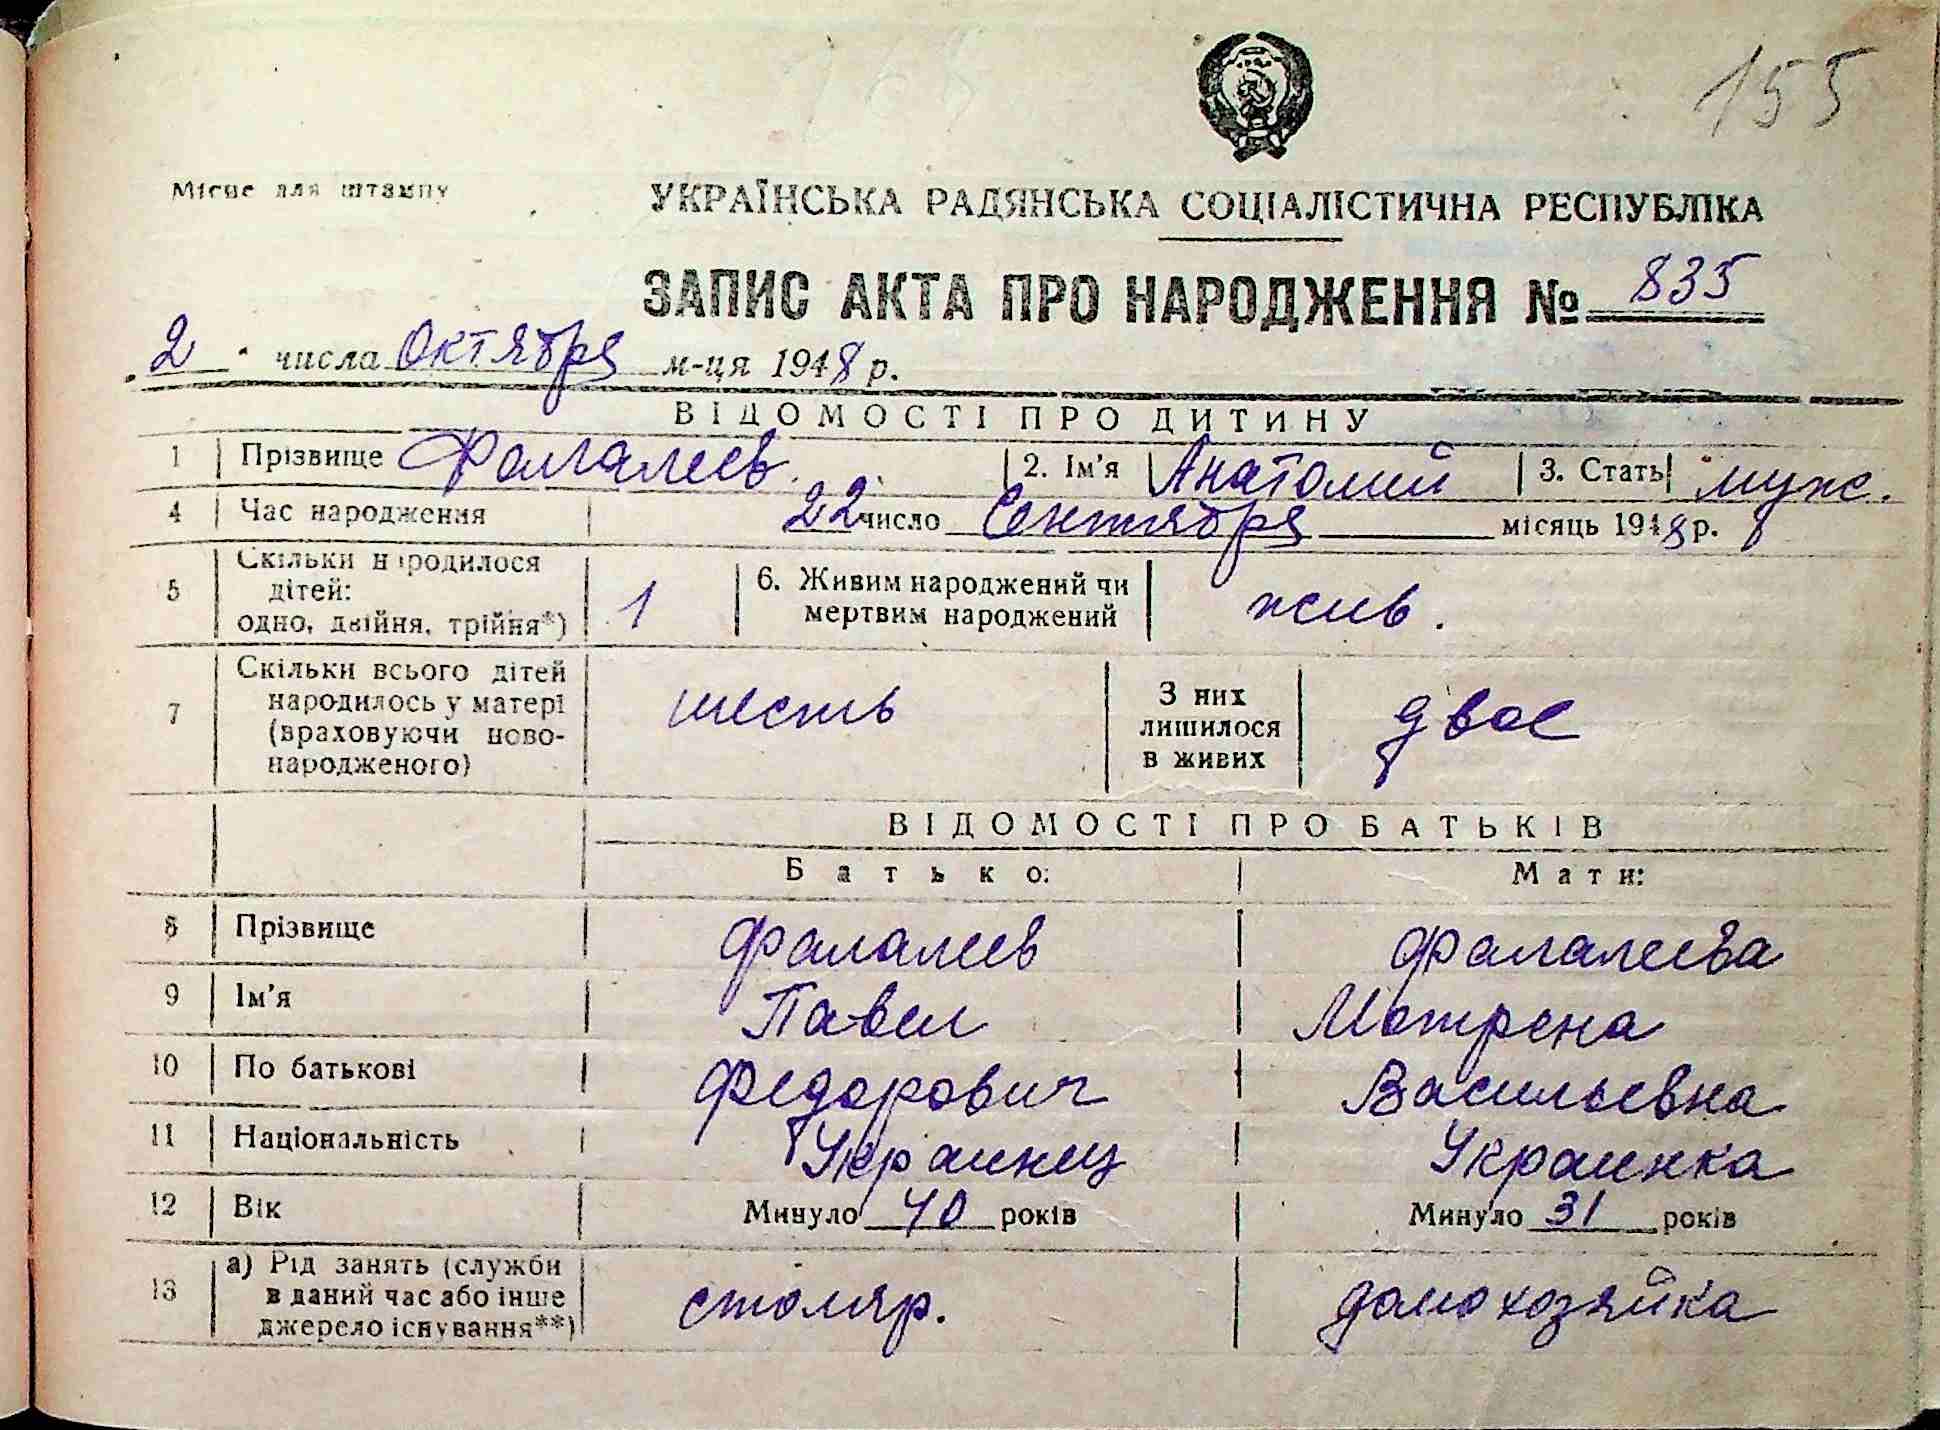 155
Місце для штампу
УКРАЇНСЬКА РАДЯНСЬКА СОЦІАЛІСТИЧНА РЕСПУБЛІКА
ЗАПИС АКТА ПРО НАРОДЖЕННЯ № 835
2 числа Октября м-ця 1948 р.
ВІДОМОСТІ ПРО ДИТИНУ
1 Прізвище Фалалеев. 2. Ім'я Анатолий 3. Стать муж.
4 Час народження 22 число Сентября місяць 1948 р.
5 Скільки народилося
дітей:
одно, двійня, трійня*) 1
6. Живим народжений чи
мертвим народжений жив.
7 Скільки всього дітей
народилось у матері
(враховуючи ново-
народженого) шесть
З них
лишилося
в живих двое
ВІДОМОСТІ ПРО БАТЬКІВ
Батько: Мати:
8 Прізвище Фалалеев Фалалеева
9 Ім'я Павел Мотрена
10 По батькові Федорович Васильевна
11 Національність Украинец Украинка
12 Вік Минуло 40 років Минуло 31 років
13 а) Рід занять (служби
в даний час або інше
джерело існування**) столяр. домохозяйка